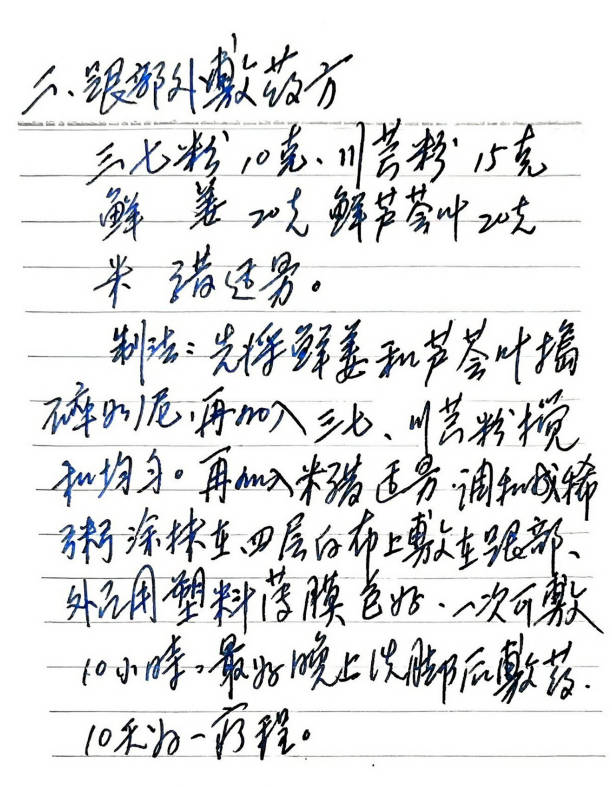 二、跟部外敷药方
三七粉10克、川芎粉15克
鲜 姜 20克 鲜芦荟叶20克
米醋适量。
制法：先将鲜姜和芦荟叶捣
碎如泥，再加入三七、川芎粉搅
和均匀。再加入米醋适量调和成稀
粥涂抹在四层白布上敷在跟部、
外边用塑料薄膜包好.一次可敷
10小时，最好晚上洗脚后敷药.
10天为一疗程。